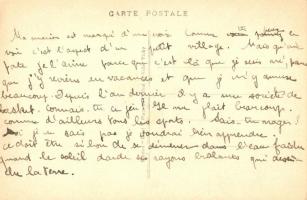 CARTE POSTALE
Ma maison est marqué d'une croix comme tu
vois c'est l'aspect d'un petit village. Mais qu'ai
fate je l'aime parce que c'est là que je suis né, pars
que j'y reviens en vacances et que je m'y amuse
beaucoup. Depuis l'an dernier il y a une société de
basket. Connais-tu ce jeu? Il me plaît beaucoup.
comme d'ailleurs tous les sports. Sais-tu nager?
moi je ne sais pas je voudrai bien apprendre.
ce doit être si bon de se démener dans l'eau fraîche
quand le soleil darde ses rayons brûlants qui
de la terre.